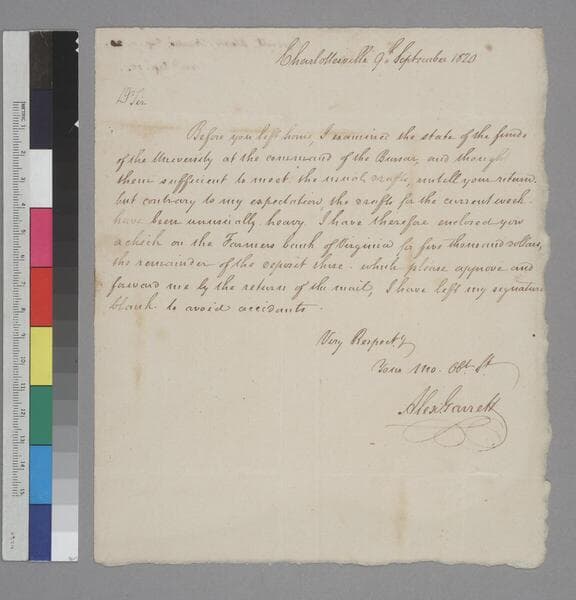 Charlottesville 9th September 1820
Dr Sir
Before you left home, I examined the state of the funds
of the University at the command of the Bursar, and thought
them sufficient to meet the usual drafts, untell your return.
but contrary to my expectation, the drafts for the current week
have been unusually heavy. I have therefore enclosed you
a check on the Farmers bank of Virginia for five thousand dollars,
the remainder of the deposit there. which please approve and
forward me by the return of the mail, I have left my signature
blank to avoid accidents.
Very Respectfy
Your Mo. Obt St
Alex Garrett